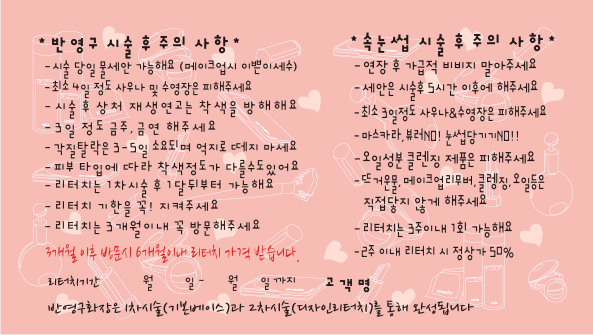 * 반영구 시술 후 주의 사항 *
- 시술 당일 물세안 가능해요 (메이크업시 이쁜이세수)
- 최소 4일 정도 사우나 및 수영장은 피해주세요
- 시술 후 상처 재생연고는 착색을 방해해요
- 3일 정도 금주, 금연 해주세요
- 각질탈락은 3-5일 소요되며 억지로 떼지 마세요
- 피부 타입에 따라 착색정도가 다를수있어요
- 리터치는 1차시술 후 1달뒤부터 가능해요
- 리터치 기한을 꼭! 지켜주세요
- 리터치는 3개월이내 꼭 방문해주세요
3개월 이후 방문시 6개월이내 리터치 가격 받습니다.
* 속눈썹 시술 후 주의 사항 *
- 연장 후 가급적 비비지 말아주세요
- 세안은 시술후 5시간 이후에 해주세요
- 최소 3일정도 사우나&수영장은 피해주세요
- 마스카라, 뷰러NO! 눈썹당기기NO!!
- 오일성분 클렌징 제품은 피해주세요
- 뜨거운물, 메이크업리무버, 클렌징, 오일등은
직접닿지 않게 해주세요
- 리터치는 3주이내 1회 가능해요
- 2주 이내 리터치 시 정상가 50%
리터치기간 월 일 - 월 일 까지 고객명
반영구화장은 1차시술(기본베이스)과 2차시술(디자인리터치)를 통해 완성됩니다